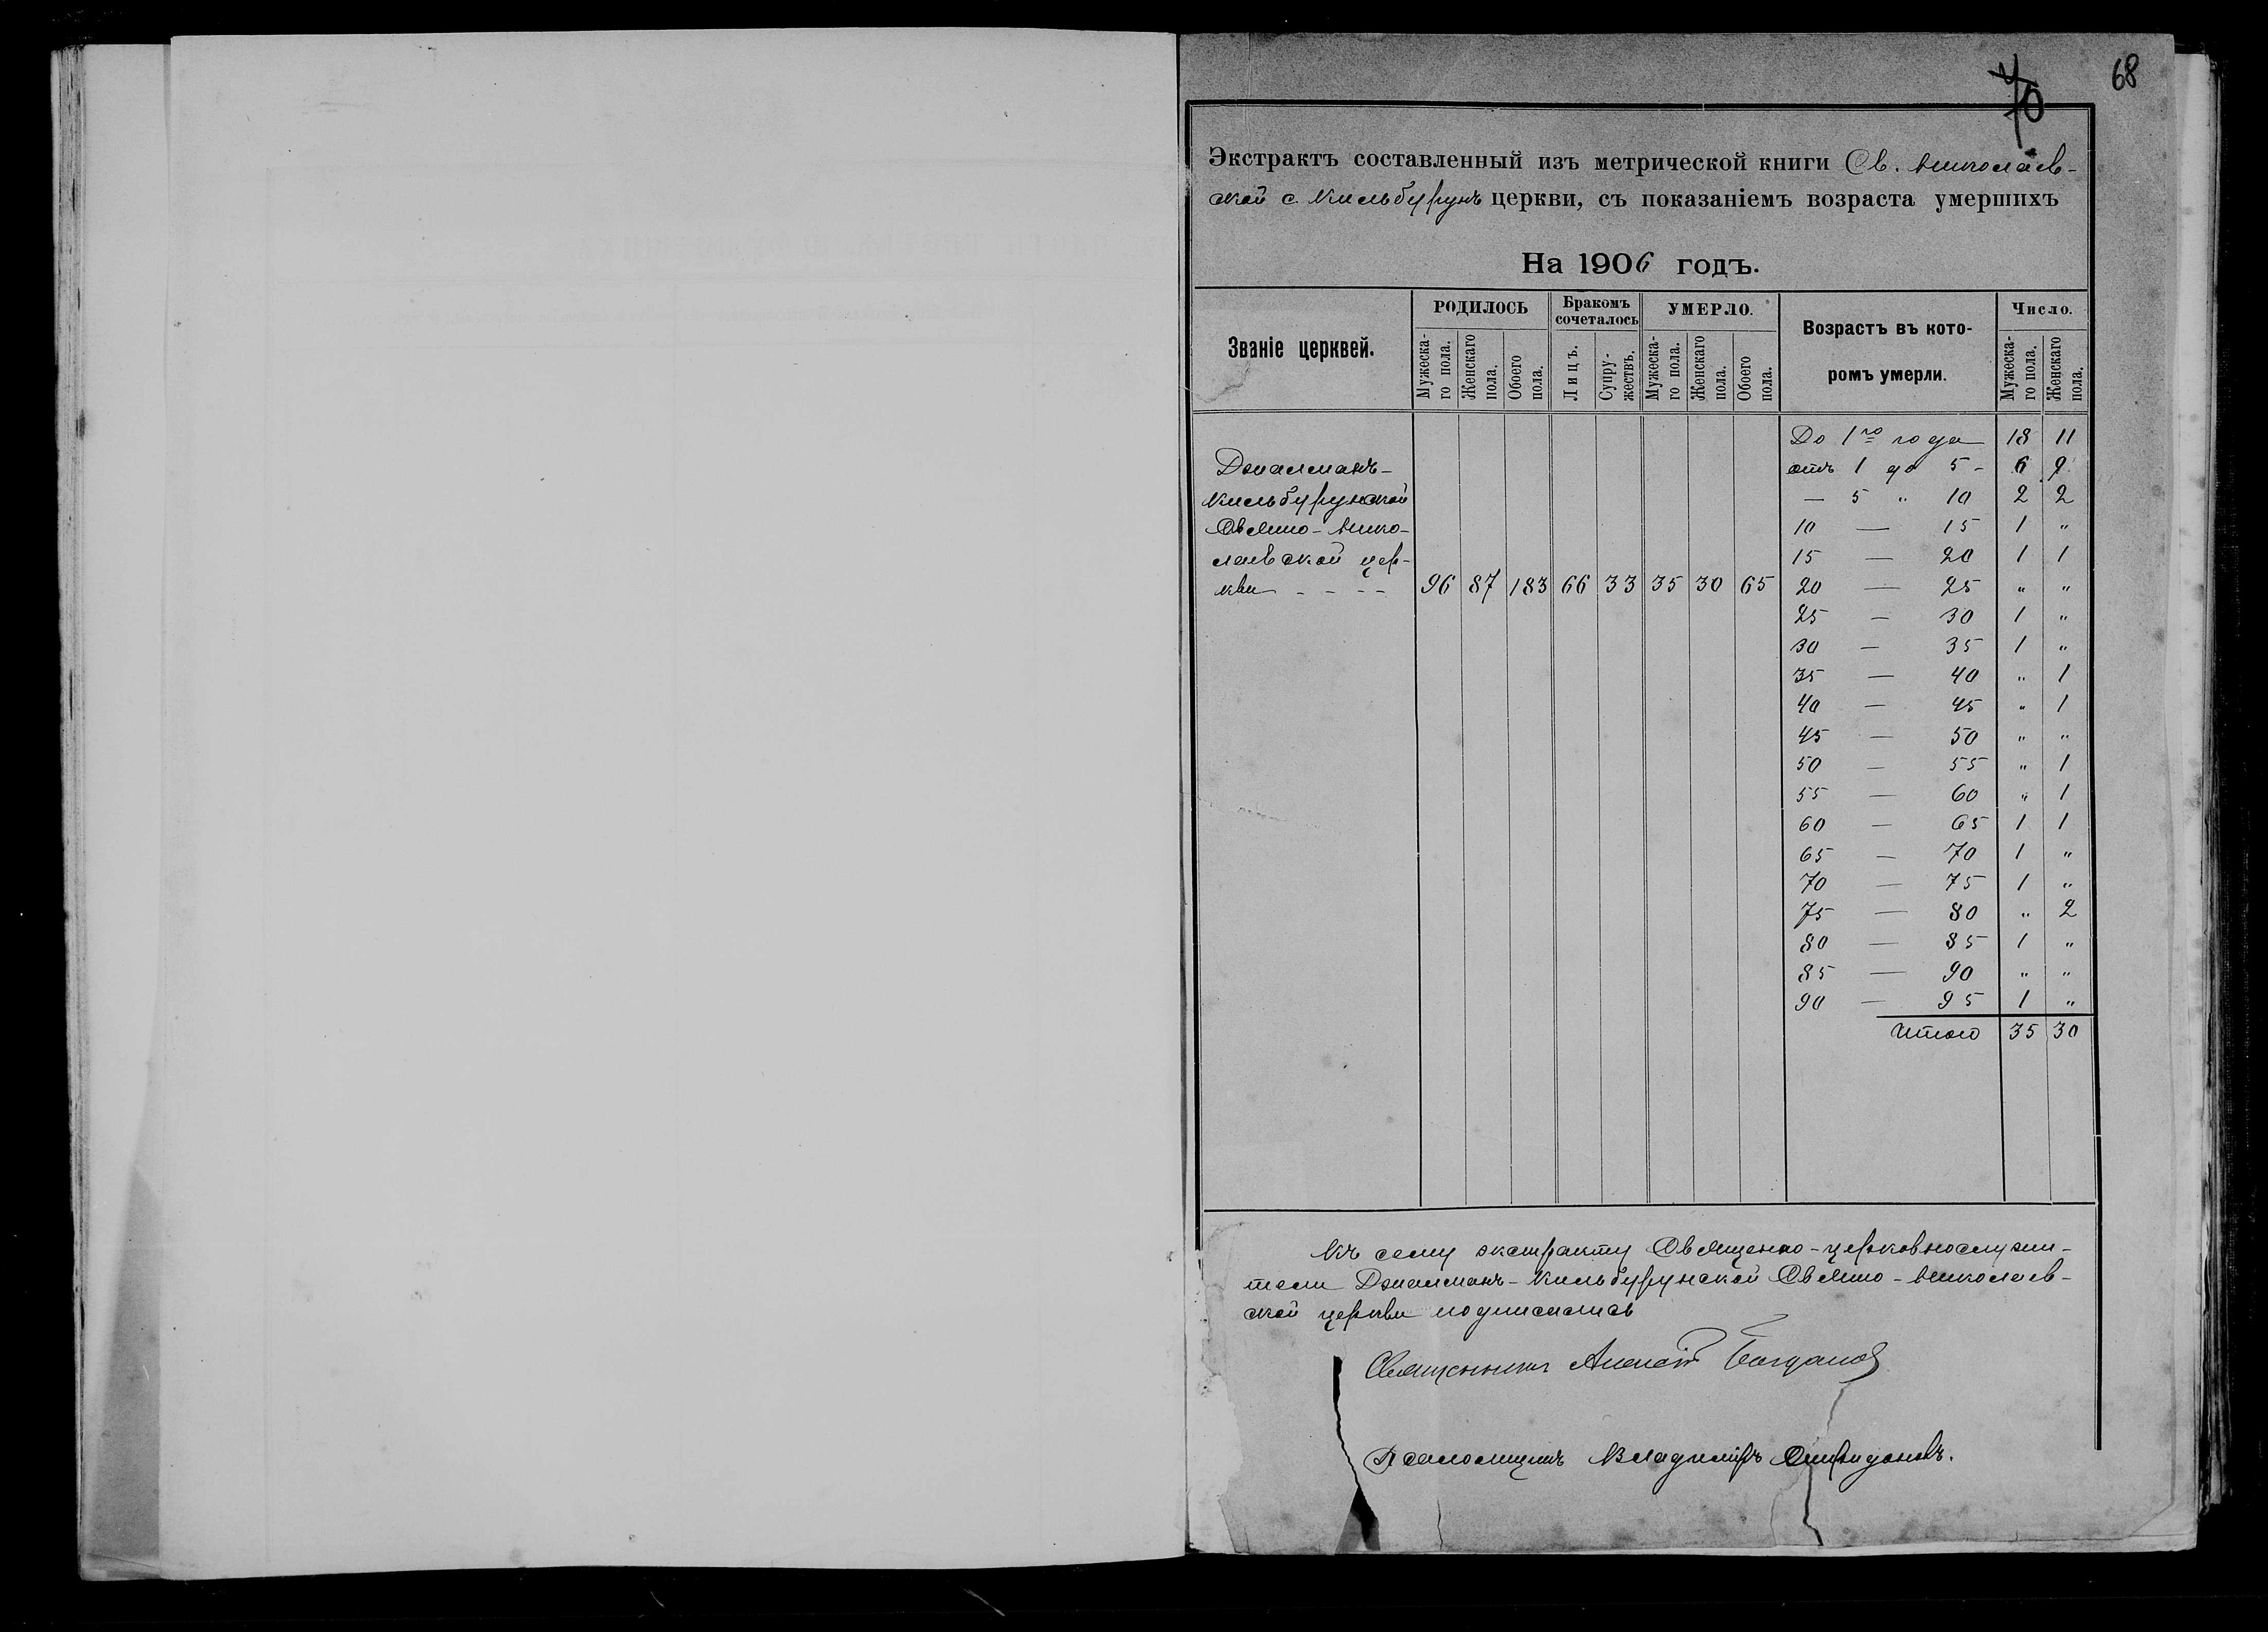 68
70
Экстрактъ составленный изъ метрической книги Св. Николаев-
ской с. Кильбурунъ церкви, съ показаніемъ возраста умершихъ
На 1906 годъ.
Званіе церквей.
РОДИЛОСЬ
Бракомъ сочеталось
УМЕРЛО.
Возрастъ въ кото-
ромъ умерли.
Число.
Мужеска-го пола.
Женскаго пола.
Обоего пола.
Лицъ.
Супру-жествъ.
Мужеска-го пола.
Женскаго пола.
Обоего пола.
Мужеска-го пола.
Женскаго пола.
До 1го года 18 11
Джалманъ- отъ 1 до 5 - 6 9
Кильбурунской — 5 " 10 2 2
Свято-Нико- 10 — 15 1 "
лаевской цер- 15 — 20 1 1
кви - - - - 96 87 183 66 33 35 30 65 20 — 25 " "
25 — 30 1 "
30 — 35 1 "
35 — 40 " 1
40 — 45 " 1
45 — 50 " "
50 — 55 " 1
55 — 60 " 1
60 — 65 1 1
65 — 70 1 "
70 — 75 1 "
75 — 80 " 2
80 — 85 1 "
85 — 90 " "
90 — 95 1 "
Итого 35 30
Къ сему экстракту Священно-церковнослужи-
тели Джалманъ-Кильбурунской Свято-Николаев-
ской церкви подписались
Священникъ Алексій Богданов
Псаломщикъ Владиміръ Спиридоновъ.